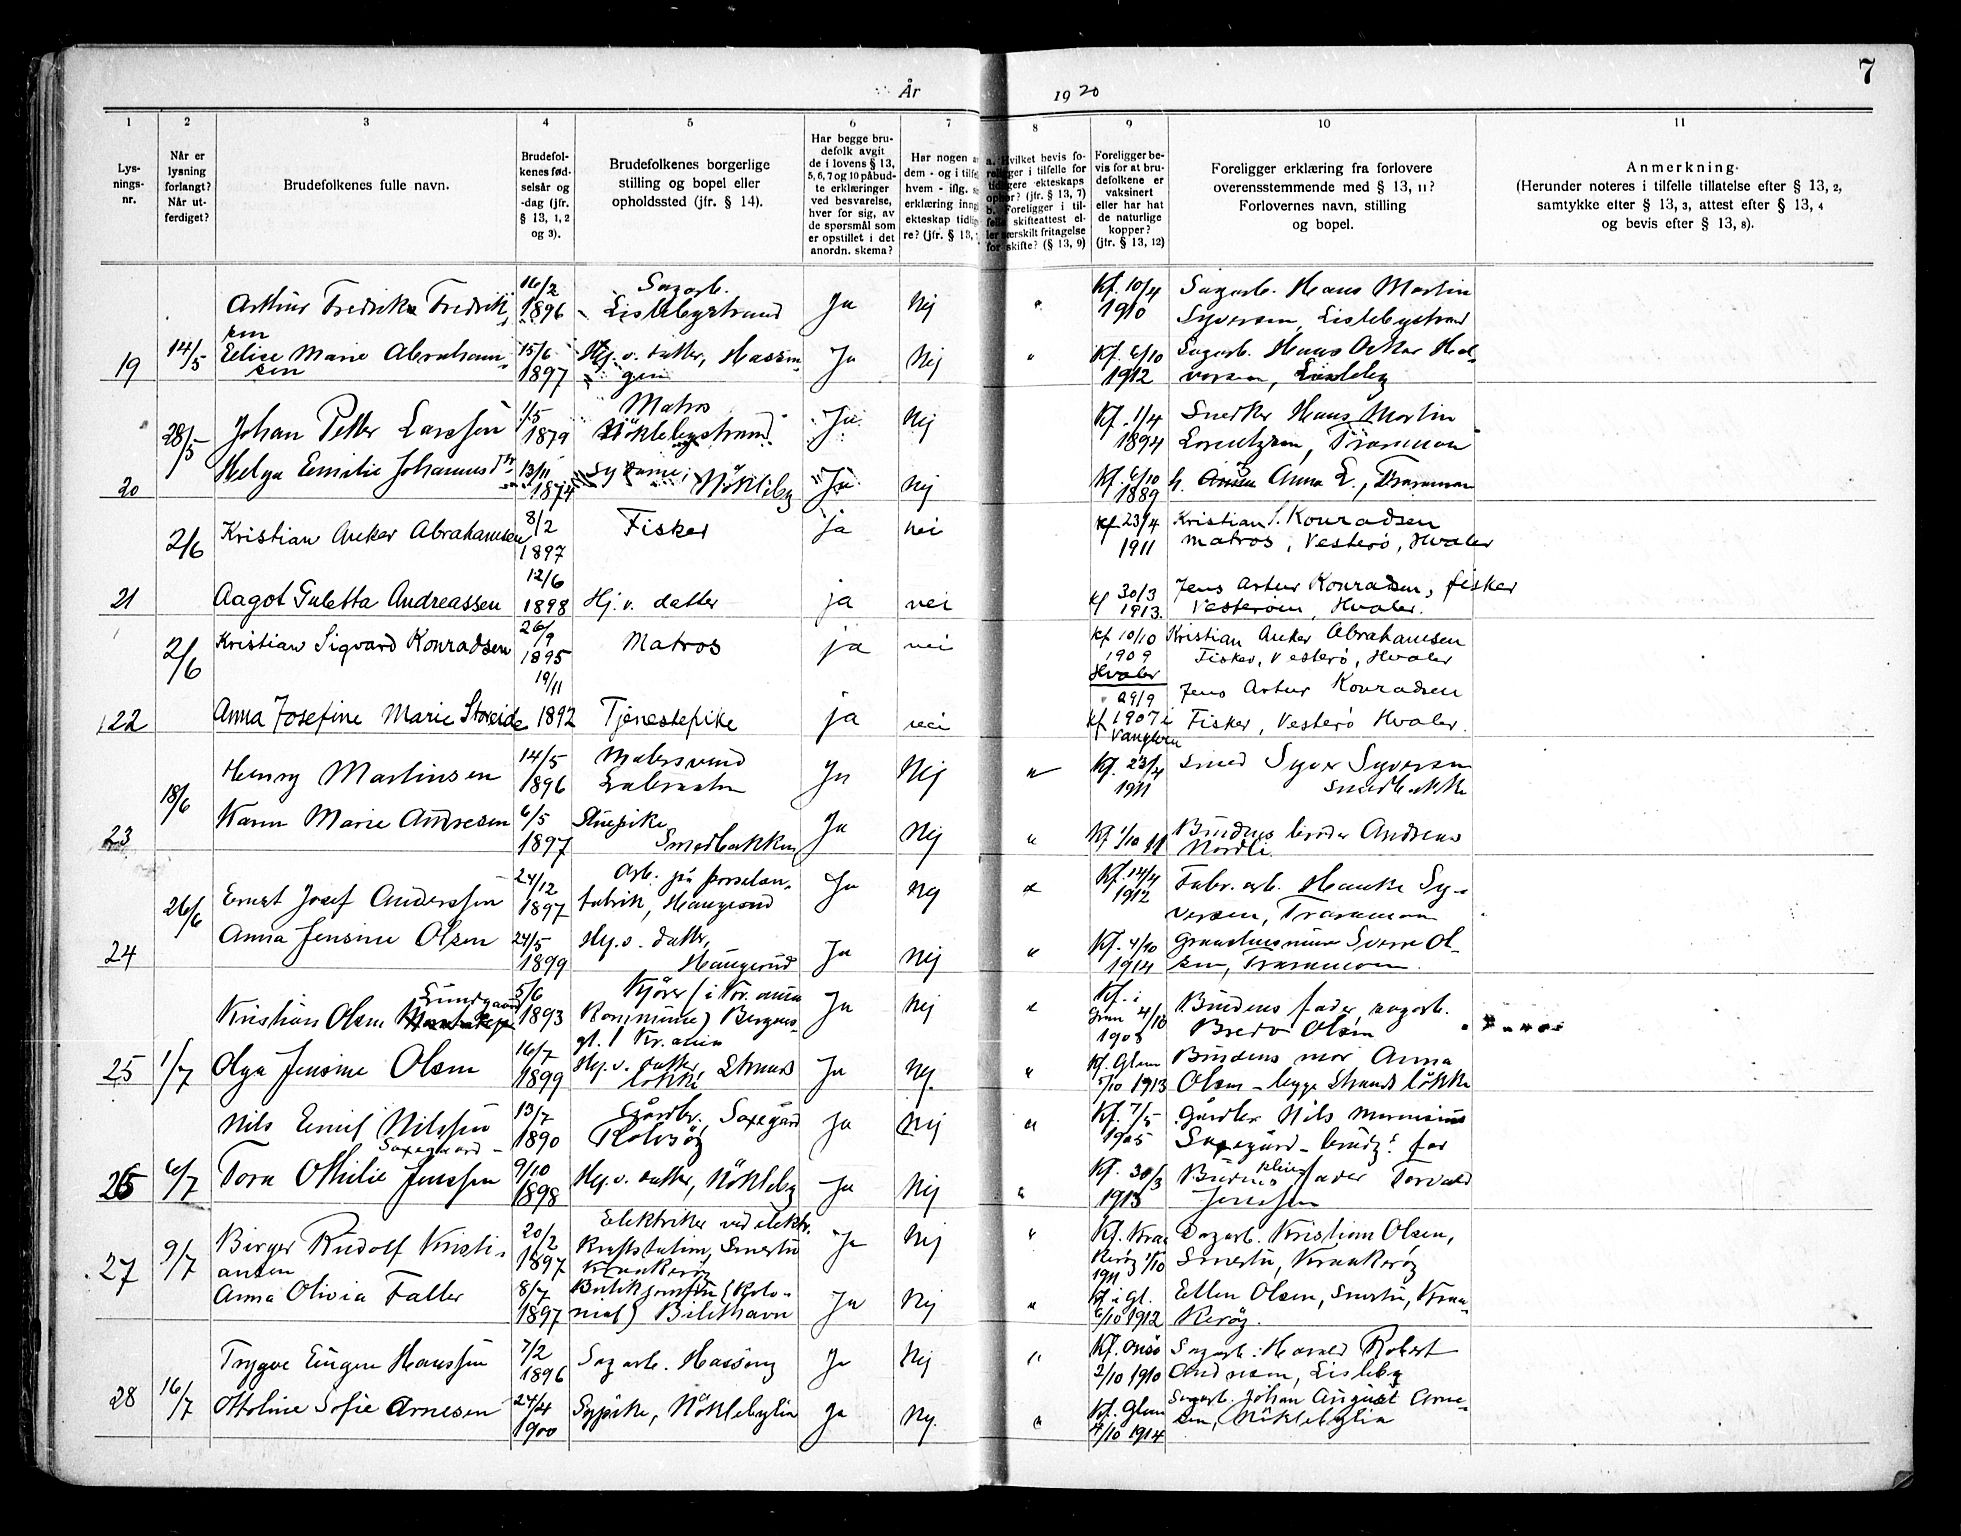 7
År 1920
1 2 3 4 5 6 7 8 9 10 11
Lys-
nings-
nr.
Når er
lysning
forlangt?
Når ut-
ferdiget?
Brudefolkenes fulle navn.
Brudefol-
kenes fød-
selsår og
-dag (jfr.
§ 13, 1, 2
og 3).
Brudefolkenes borgerlige
stilling og bopel eller
opholdssted (jfr. § 14).
Har begge bru-
defolk avgit
de i lovens § 13,
5, 6, 7 og 10 påbud-
te erklæringer
ved besvarelse,
hver for sig, av
de spørsmål som
er opstillet i det
anordn. skema?
Har nogen a
dem - og i tilfel
hvem - iflg. s
erklæring inng
ekteskap tidlig
re? (jfr. § 13,
a. Hvilket bevis fo-
religger i tilfelle for
tidligere ekteskaps
ophør? (jfr. § 13, 7)
b. Foreligger i til-
felle skifteattest el-
ler særskilt fritagelse
for skifte? (§ 13, 9)
Foreligger be-
vis for at bru-
defolkene er
vaksinert
eller har hat
de naturlige
kopper?
(jfr. § 13, 12)
Foreligger erklæring fra forlovere
overensstemmende med § 13, 11?
Forlovernes navn, stilling
og bopel.
Anmerkning.
(Herunder noteres i tilfelle tillatelse efter § 13, 2,
samtykke efter § 13, 3, attest efter § 13, 4
og bevis efter § 13, 8).
Arthur Fredrik Fredrik-
sen
16/2 1896
Sagarb. Lislebystrand
Ja Nej "
Kf. 10/4 1910
Sagarb. Hans Martin
Syversen, Lislebystrand
19 14/5
Elise Marie Abraham-
sen
15/6 1897
Hj. v. datter, Hassin-
gen
Ja Nej "
Kf. 6/10 1912
Sagarb. Hans Oskar Hal-
vorsen, Lisleby
28/5
Johan Petter Larssen
1/5 1879
Matros
Nöklebystrand
Ja Nej
Kf. 1/4 1894
Snedker Hans Martin
Lorentzen, Traramoen
20
Helga Emilie Johannesdtr
13/11 1874
Sydame, Nökleby
Ja Nej
Kf. 6/10 1889
Anna E., Traramoen
2/6
Kristian Anker Abrahamsen
8/2 1897
Fisker
ja nei
Kf 23/4 1911
Kristian S. Konradsen
matros, Vesterö, Hvaler
21
Aagot Guletta Andreassen
12/6 1898
Hj. v. datter
ja nei
Kf 30/3 1913.
Jens Artur Konradsen, fisker
Vesteröen, Hvaler.
2/6
Kristian Sigvard Konradsen
26/9 1895
Matros
ja nei
Kf 10/10 1909
Hvaler
Kristian Anker Abrahamsen
Fisker, Vesterö, Hvaler
22
Anna Josefine Marie Storeide
19/11 1892
Tjenestepike
ja nei
29/9
Kf 1907 i
Jens Artur Konradsen
Fisker, Vesterö Hvaler.
18/6
Henry Martinsen
14/5 1896
Malersvend
Ja Nej "
Kf. 23/4 1911
Smed Syver Syversen
Smedbakken
23
Karen Marie Andresen
6/5 1897
Stuepike
Smedbakken
Ja Nej "
Kf 1/10 11
Brudens broder Andreas
Nordli.
26/6
Ernst Josef Anderssen
24/12 1897
Arb. på porselen-
fabrik, Haugesund
Ja Nej "
Kf. 14/4 1912
Fabr. arb. Hauke Sy-
versen, Traramoen
24
Anna Jensine Olsen
24/5 1899
Hj. v. datter,
Haugerud
Ja Nej "
Kf. 4/10 1914
Sverre Ol-
sen, Traramoen.
Kristian Olsen Lundgaard
5/6 1893
Kjörer (i Kr.ania
Kommune) Bergens-
gt. 1 Kr.ania
Ja Nej "
Kf. i
Gran 4/10
1908
Brudens fader, sagarb.
Bredo Olsen
25 1/7
Olga Jensine Olsen
16/7 1899
Hj. v. datter, Strands
lökke
Ja Nej. "
Kf. Glem
5/10 1913
Brudens mor Anna
Olsen - begge Strandslökke
Nils Emil Nilssen
Saxegaard -
13/7 1890
Gårdbr. Saxegård
Rolvsöy
Ja Nej "
Kf. 7/5 1905
Gårdbr Nils Marensius
Saxegård - brudg.s far
26 6/7
Tora Othilie Jenssen
9/10 1898
Hj. v. datter, Nökleby
Ja Nej "
Kf. 30/3 1913
Brudens fader Torvald
Jenssen
27 9/7
Birger Rudolf Kristi-
ansen
20/2 1897
Elektriker ved elektr.
Kraftstation, Smertu
Kraakeröy
Ja Nej "
Kf. Kraa
keröy 1/10
1911
Dagarb. Kristian Olsen,
Smertu, Kraakeröy
Anna Olivia Faller
8/7 1897
Butikjomfru (Kolo-
nial) Bilethavn
Ja Nej "
Kf i Gl.
6/10 1912
Ellen Olsen, Smertu, Kraa-
keröy.
Trygve Eugen Hanssen
7/2 1896
Sagarb. Hassing
Ja Nej "
Kf. Onsö
2/10 1910
Sagarb. Harald Robert
Andresen, Lisleby
28 16/7
Ottoline Sofie Arnesen
24/4 1900
Sypike, Nöklebylia
Ja Nej. "
Kf. Glem
4/10 1914
Sagarb. Johan August Arne-
sen, Nöklebylia